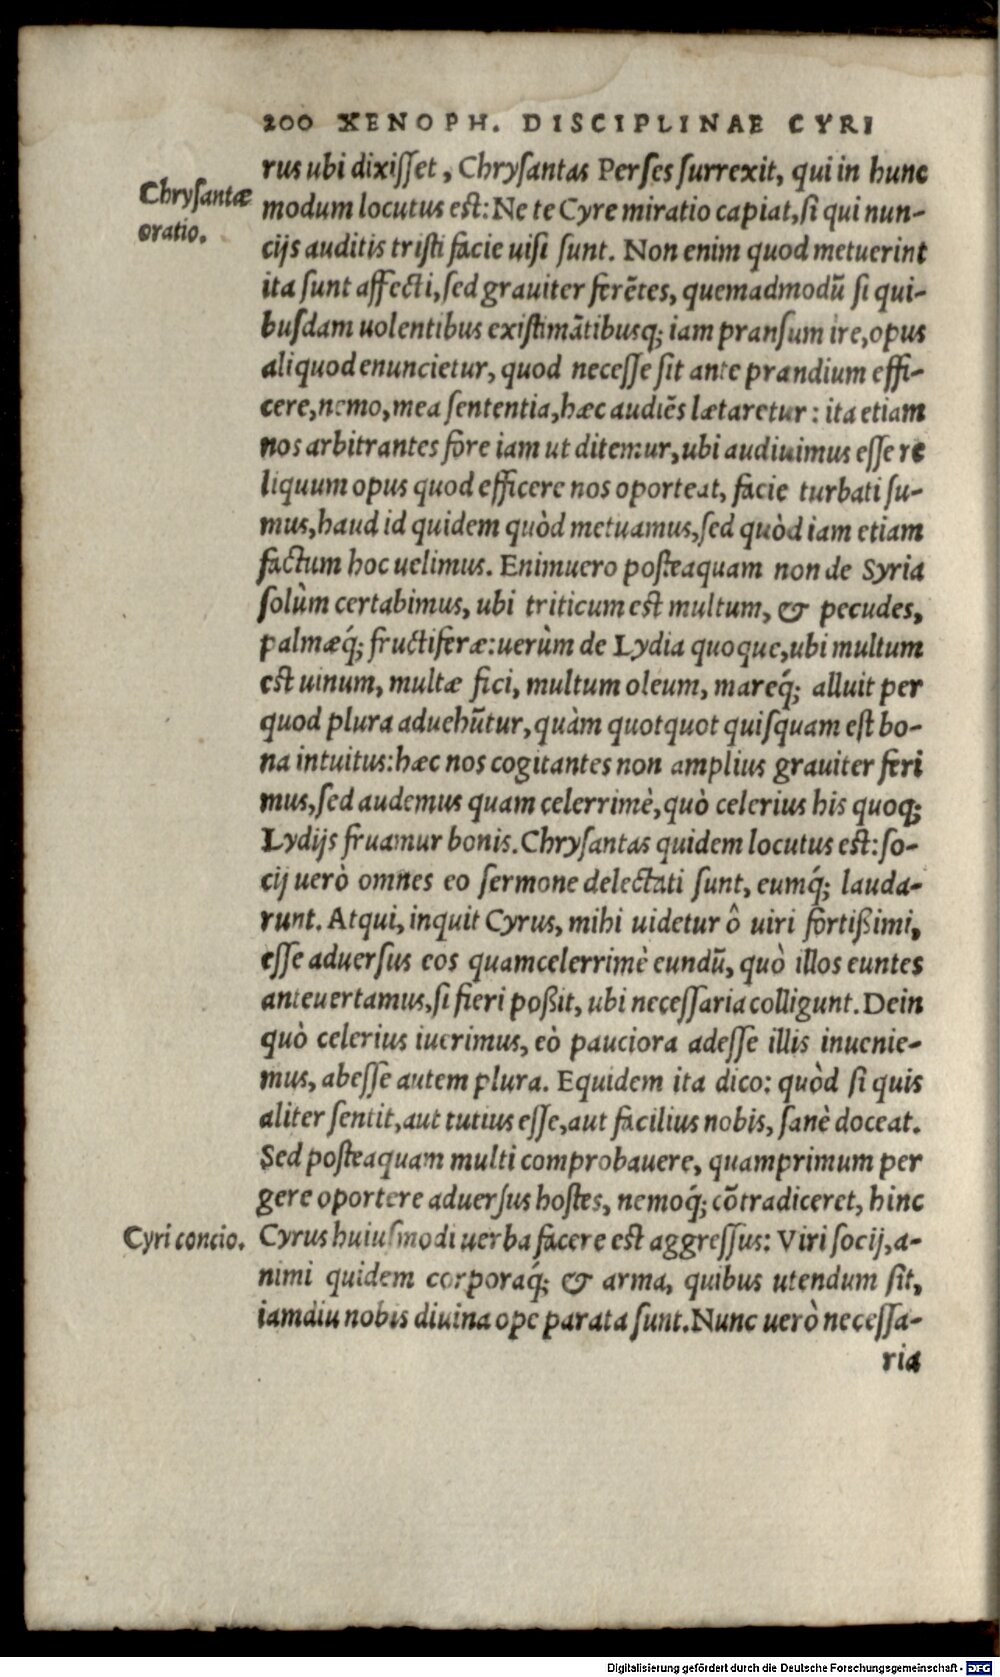 200 XENOPH. DISCIPLINAE CYRI
rus ubi dixiſſet, Chryſantas Perſes ſurrexit, qui in hunc
Chryſantæ
oratio.
modum locutus est: Ne te Cyre miratio capiat, ſi qui nun-
cijs auditis tristi facie uiſi ſunt. Non enim quod metuerint
ita ſunt affecti, ſed grauiter ferẽtes, quemadmodũ ſi qui-
buſdam uolentibus existimãtibusq; iam pranſum ire, opus
aliquod enuncietur, quod neceſſe ſit ante prandium effi-
cere, nemo, mea ſententia, hæc audiẽs lætaretur: ita etiam
nos arbitrantes fore iam ut ditemur, ubi audiuimus eſſe re
liquum opus quod efficere nos oporteat, facie turbati ſu-
mus, haud id quidem quòd metuamus, ſed quòd iam etiam
factum hoc uelimus. Enimuero posteaquam non de Syria
ſolùm certabimus, ubi triticum est multum, & pecudes,
palmæq́; fructiferæ: uerùm de Lydia quoque, ubi multum
est uinum, multæ fici, multum oleum, mareq́; alluit per
quod plura aduehũtur, quàm quotquot quiſquam est bo-
na intuitus: hæc nos cogitantes non amplius grauiter feri
mus, ſed audemus quam celerrimè, quò celerius his quoq;
Lydijs fruamur bonis. Chryſantas quidem locutus est: ſo-
cij uerò omnes eo ſermone delectati ſunt, eumq́; lauda-
runt. Atqui, inquit Cyrus, mihi uidetur ô uiri fortißimi,
eſſe aduerſus eos quamcelerrimè eundũ, quò illos euntes
anteuertamus, ſi fieri poßit, ubi neceſſaria colligunt. Dein
quò celerius iuerimus, eò pauciora adeſſe illis inuenie-
mus, abeſſe autem plura. Equidem ita dico: quòd ſi quis
aliter ſentit, aut tutius eſſe, aut facilius nobis, ſanè doceat.
Sed posteaquam multi comprobauere, quamprimum per
gere oportere aduerſus hostes, nemoq́; cõtradiceret, hinc
Cyri concio.
Cyrus huiuſmodi uerba facere est aggreſſus: Viri ſocij, a-
nimi quidem corporaq́; & arma, quibus utendum ſit,
iamdiu nobis diuina ope parata ſunt. Nunc uerò neceſſa-
ria
Digitalisierung gefördert durch die Deutsche Forschungsgemeinschaft - DFG